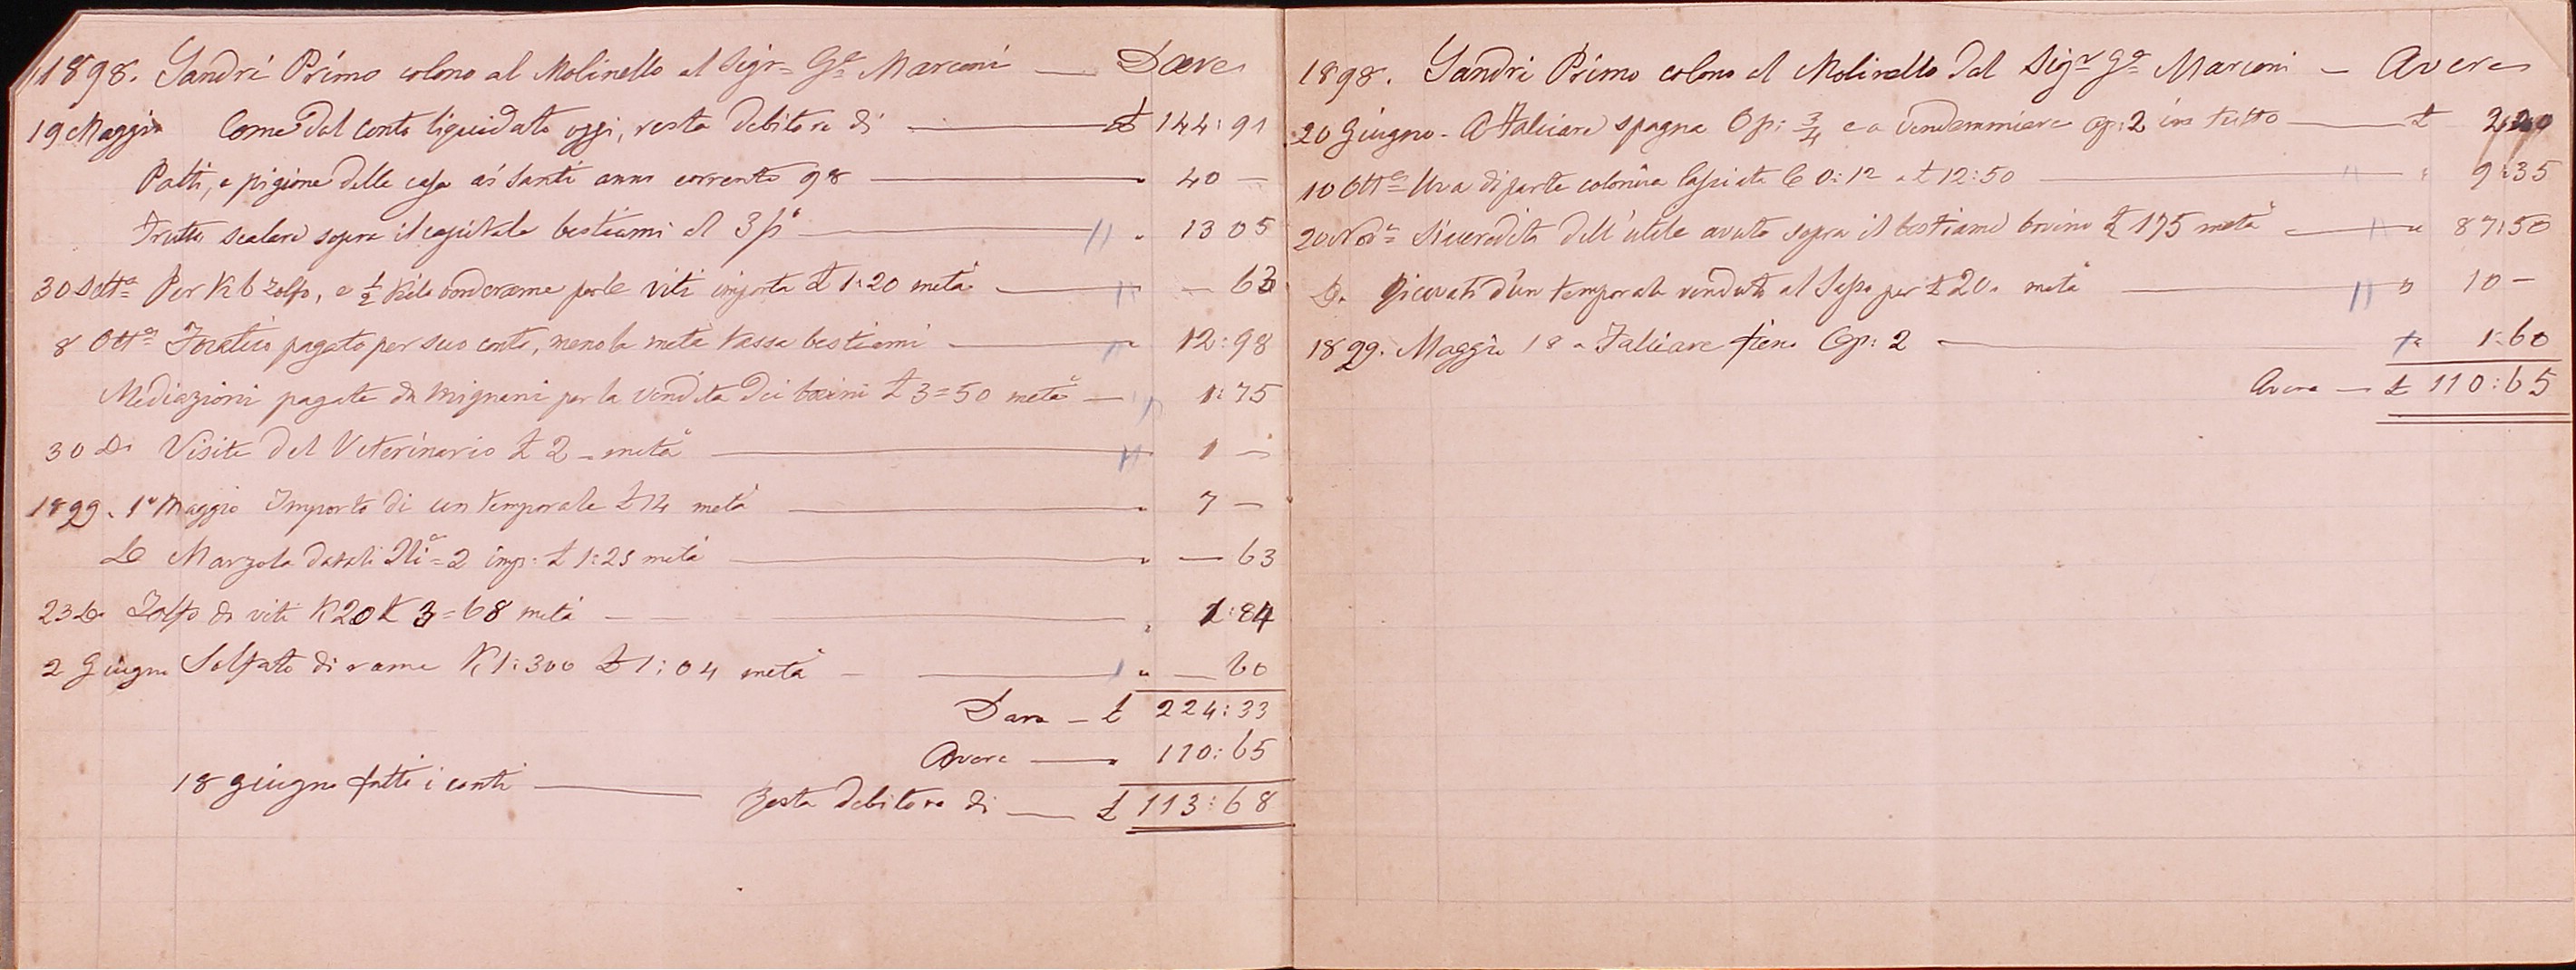 1898. Sandri Primo colono al Molinello al Sigr= Ga= Marconi — Dare
19 Maggio Come dal conto liquidato oggi, resta debitore di — £ 144:91
Patti, e pigione della casa ai Santi anno corrente 98 — " 40 —
Frutto scalare sopra il capitale bestiami al 3 p% — " 13 05
30 Sette= Per K 6 zolfo, e 1/2 Kilo per le viti importa £ 1:20 metà — — 63
8 Otte= Focatico pagato per suo conto, meno la metà tassa bestiami — " 12:98
Mediazioni pagate da Mignani per la vendita dei bovini £ 3=50 metà — 1:75
30 Do Visite del Veterinario £ 2 - metà — 1 —
1899. 1° Maggio Importo di un temporale £ 14 metà — " 7 —
Do Marzola datali 2 imp: £ 1:25 metà — " — 63
23 Do Zolfo da viti K 20 £ 3=68 metà — " 1:84
2 Giugno Solfato di rame K 1:300 £ 1:04 metà — " — 60
Dare — £ 224:33
Avere — " 110:65
18 giugno fatti i conti — Resta debitore di — £ 113:68
1898. Sandri Primo colono al Molinello dal Sigr= Ga= Marconi — Avere
20 Giugno - A falciare spagna Op: 3/4 e a vendemmiare Op: 2 in tutto — £ 2:20
10 Otte= Uva di parte colonica lasciata C 0:12 a £ 12:50 — " 9:35
20 Nove= Si accredita dell'utile avuto sopra il bestiame bovino £ 175 metà — " 87:50
Do Ricavati d'un temporale venduto al per £ 20. metà — " 10 —
1899. Maggio 18 - Falciare fieno Op: 2 — " 1:60
Avere — £ 110:65